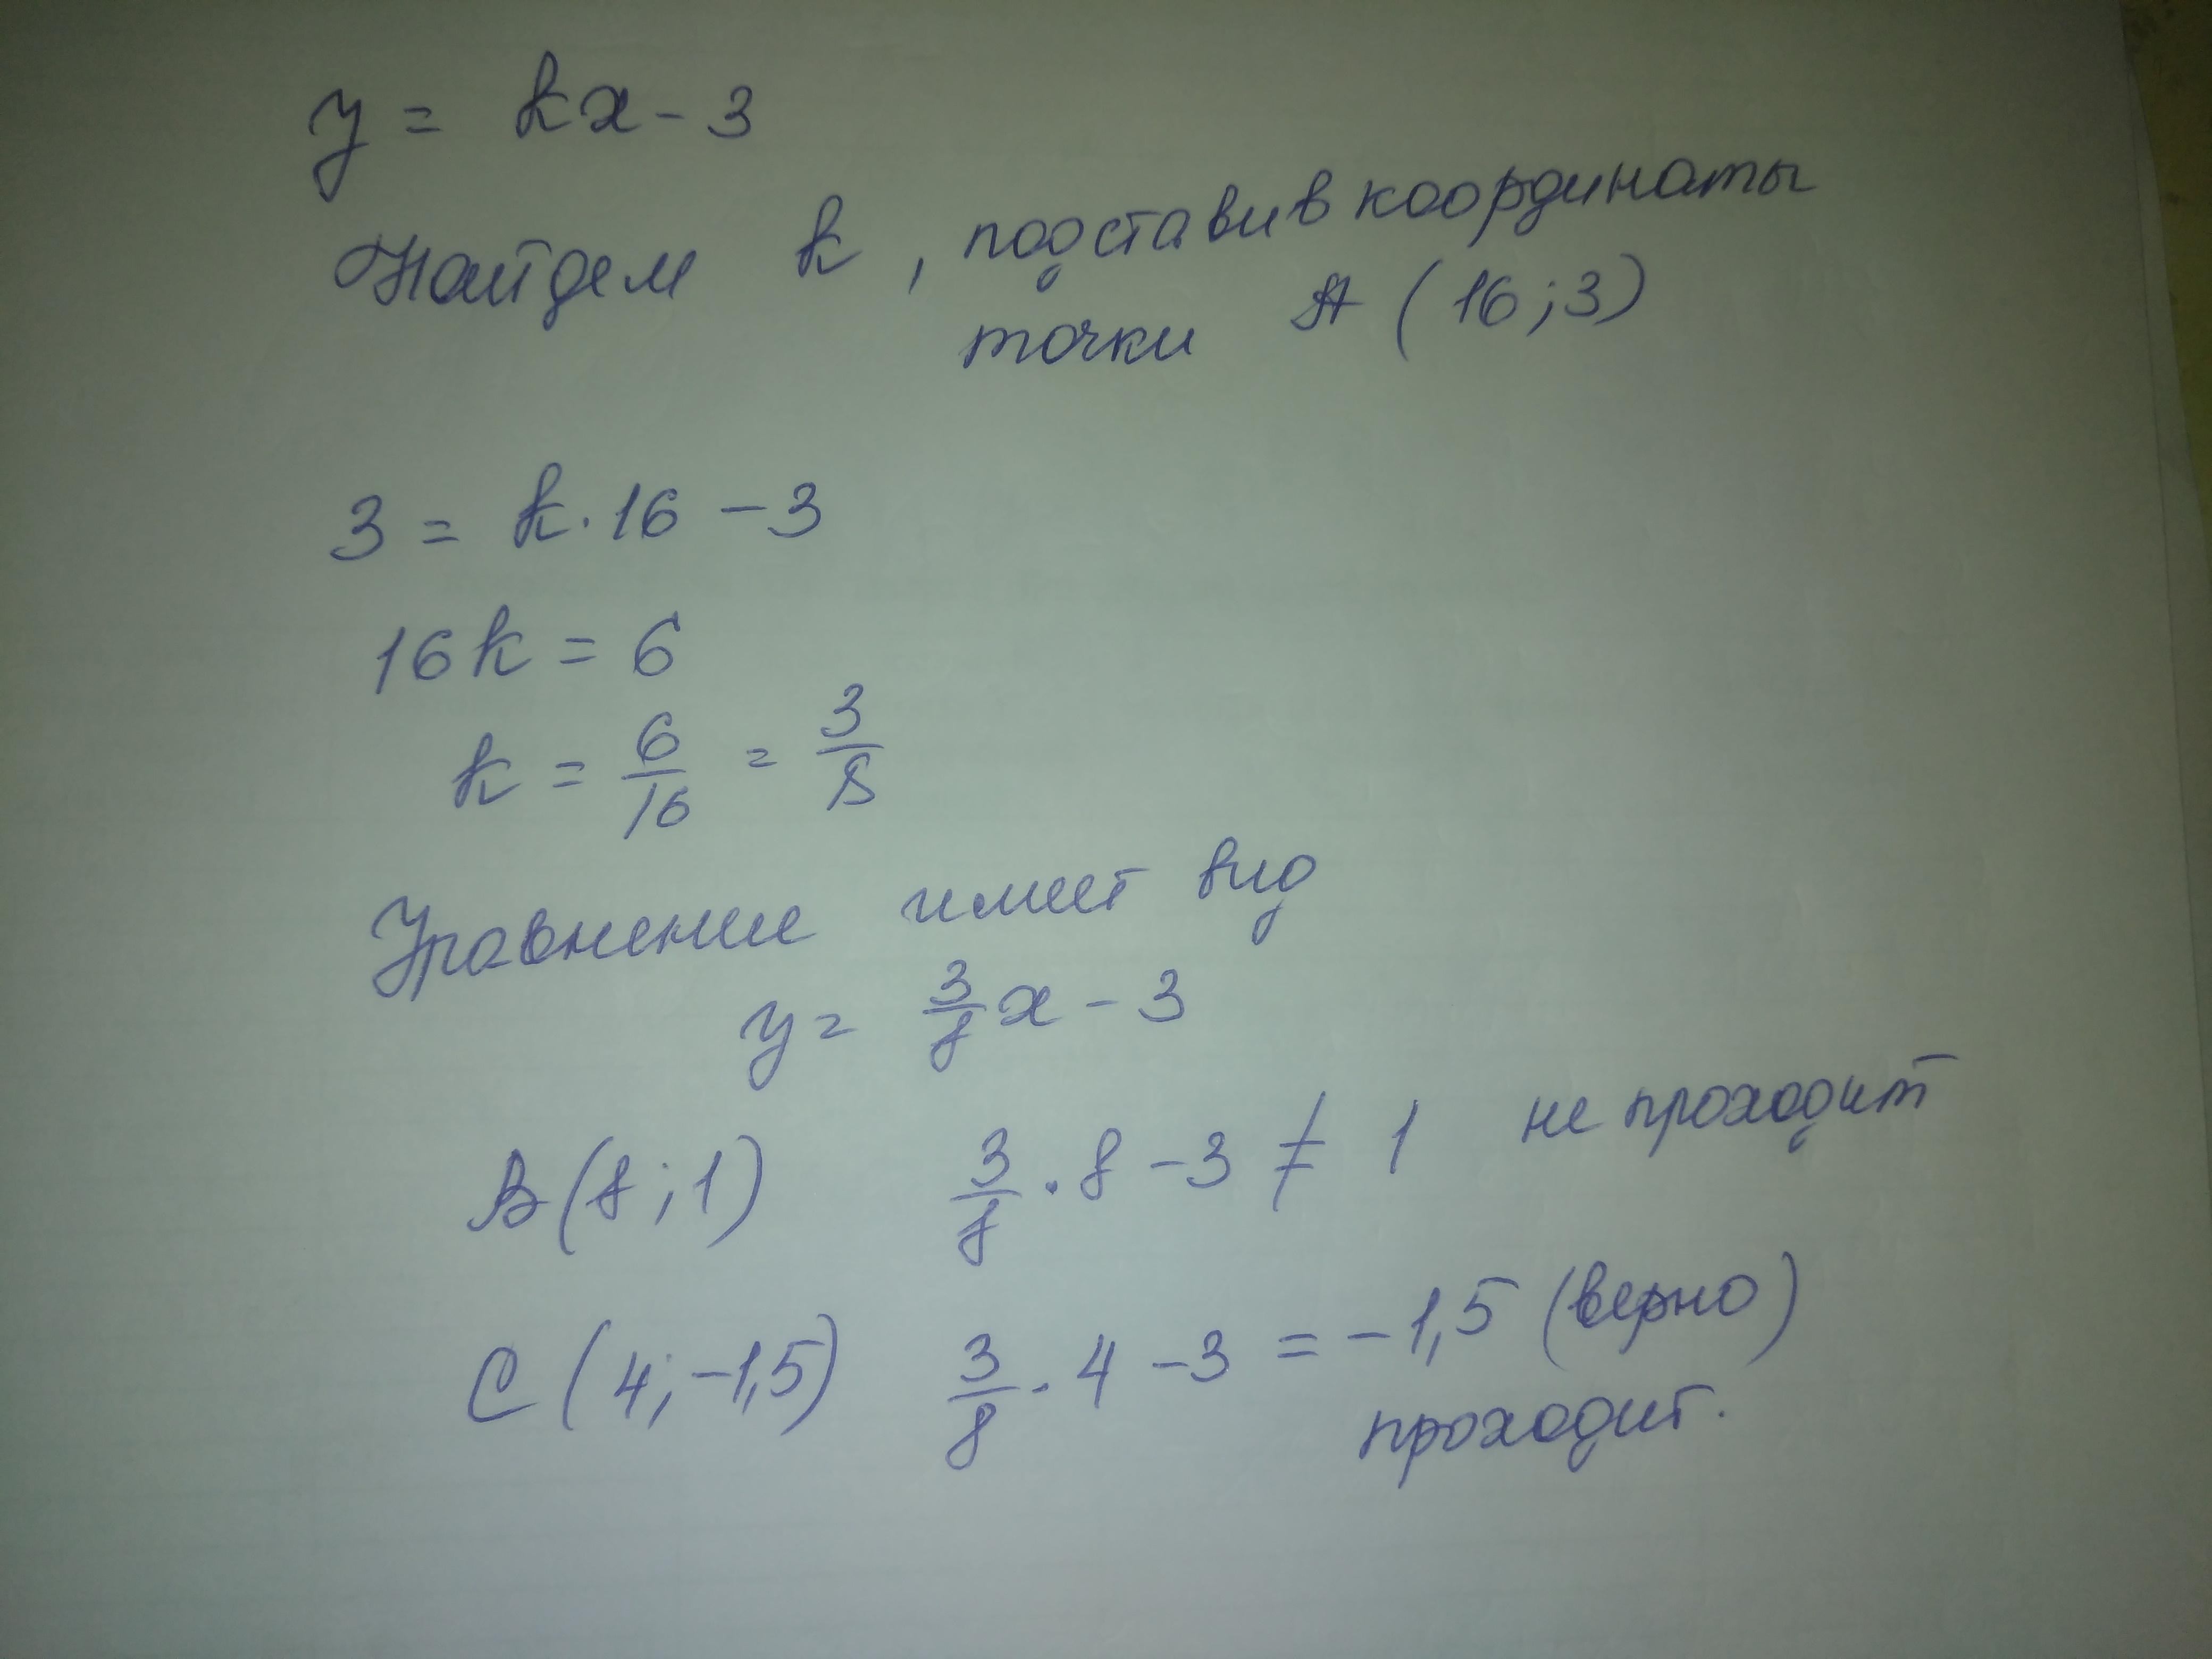 y = kx - 3
Найдем k, подставив координаты
точки A (16; 3)
3 = k · 16 - 3
16k = 6
k = 6/16 = 3/8
Уравнение имеет вид
y = 3/8 x - 3
B (8; 1) 3/8 · 8 - 3 ≠ 1 не проходит
C (4; -1,5) 3/8 · 4 - 3 = -1,5 (верно)
проходит.